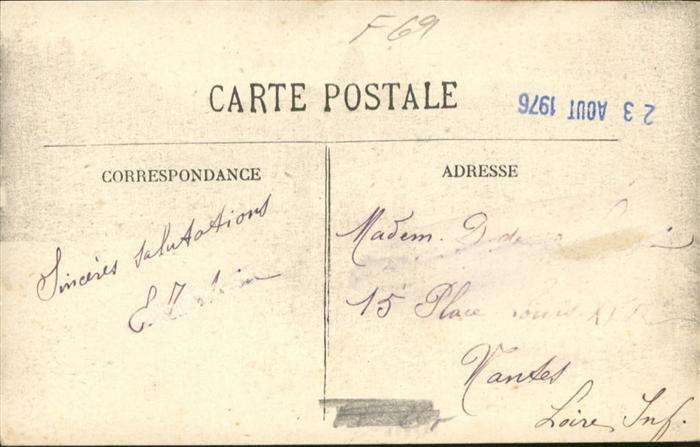 F 69
CARTE POSTALE
23 AOUT 1976
CORRESPONDANCE
ADRESSE
Sincères salutations
E.
Madem. D de
15 Place Louis
Nantes
Loire Inf.